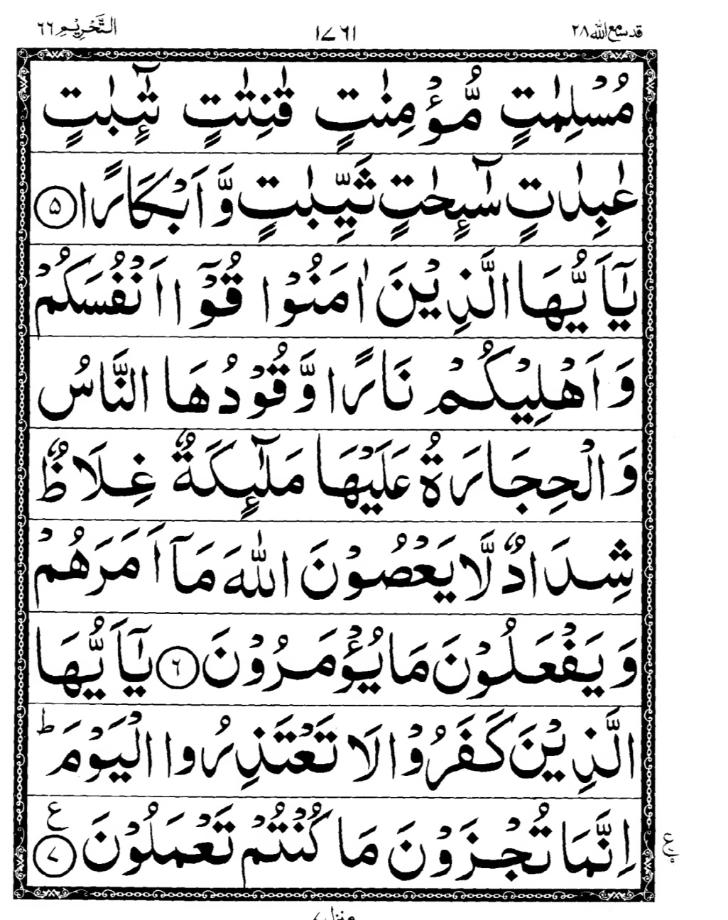 التَّحْرِيْم ٦٦ ١٧٦١ قد سمع الله ٢٨
مُسْلِمٰتٍ مُّؤْمِنٰتٍ قٰنِتٰتٍ تٰٓئِبٰتٍ
عٰبِدٰتٍ سٰٓئِحٰتٍ ثَيِّبٰتٍ وَّاَبْكَارًا ۝٥
يٰٓاَيُّهَا الَّذِيْنَ اٰمَنُوْا قُوْٓا اَنْفُسَكُمْ
وَاَهْلِيْكُمْ نَارًا وَّقُوْدُهَا النَّاسُ
وَالْحِجَارَةُ عَلَيْهَا مَلٰٓئِكَةٌ غِلَاظٌ
شِدَادٌ لَّا يَعْصُوْنَ اللّٰهَ مَآ اَمَرَهُمْ
وَيَفْعَلُوْنَ مَا يُؤْمَرُوْنَ ۝٦ يٰٓاَيُّهَا
الَّذِيْنَ كَفَرُوْا لَا تَعْتَذِرُوا الْيَوْمَ ؕ
اِنَّمَا تُجْزَوْنَ مَا كُنْتُمْ تَعْمَلُوْنَ ۝٧ ع
منزل ٧